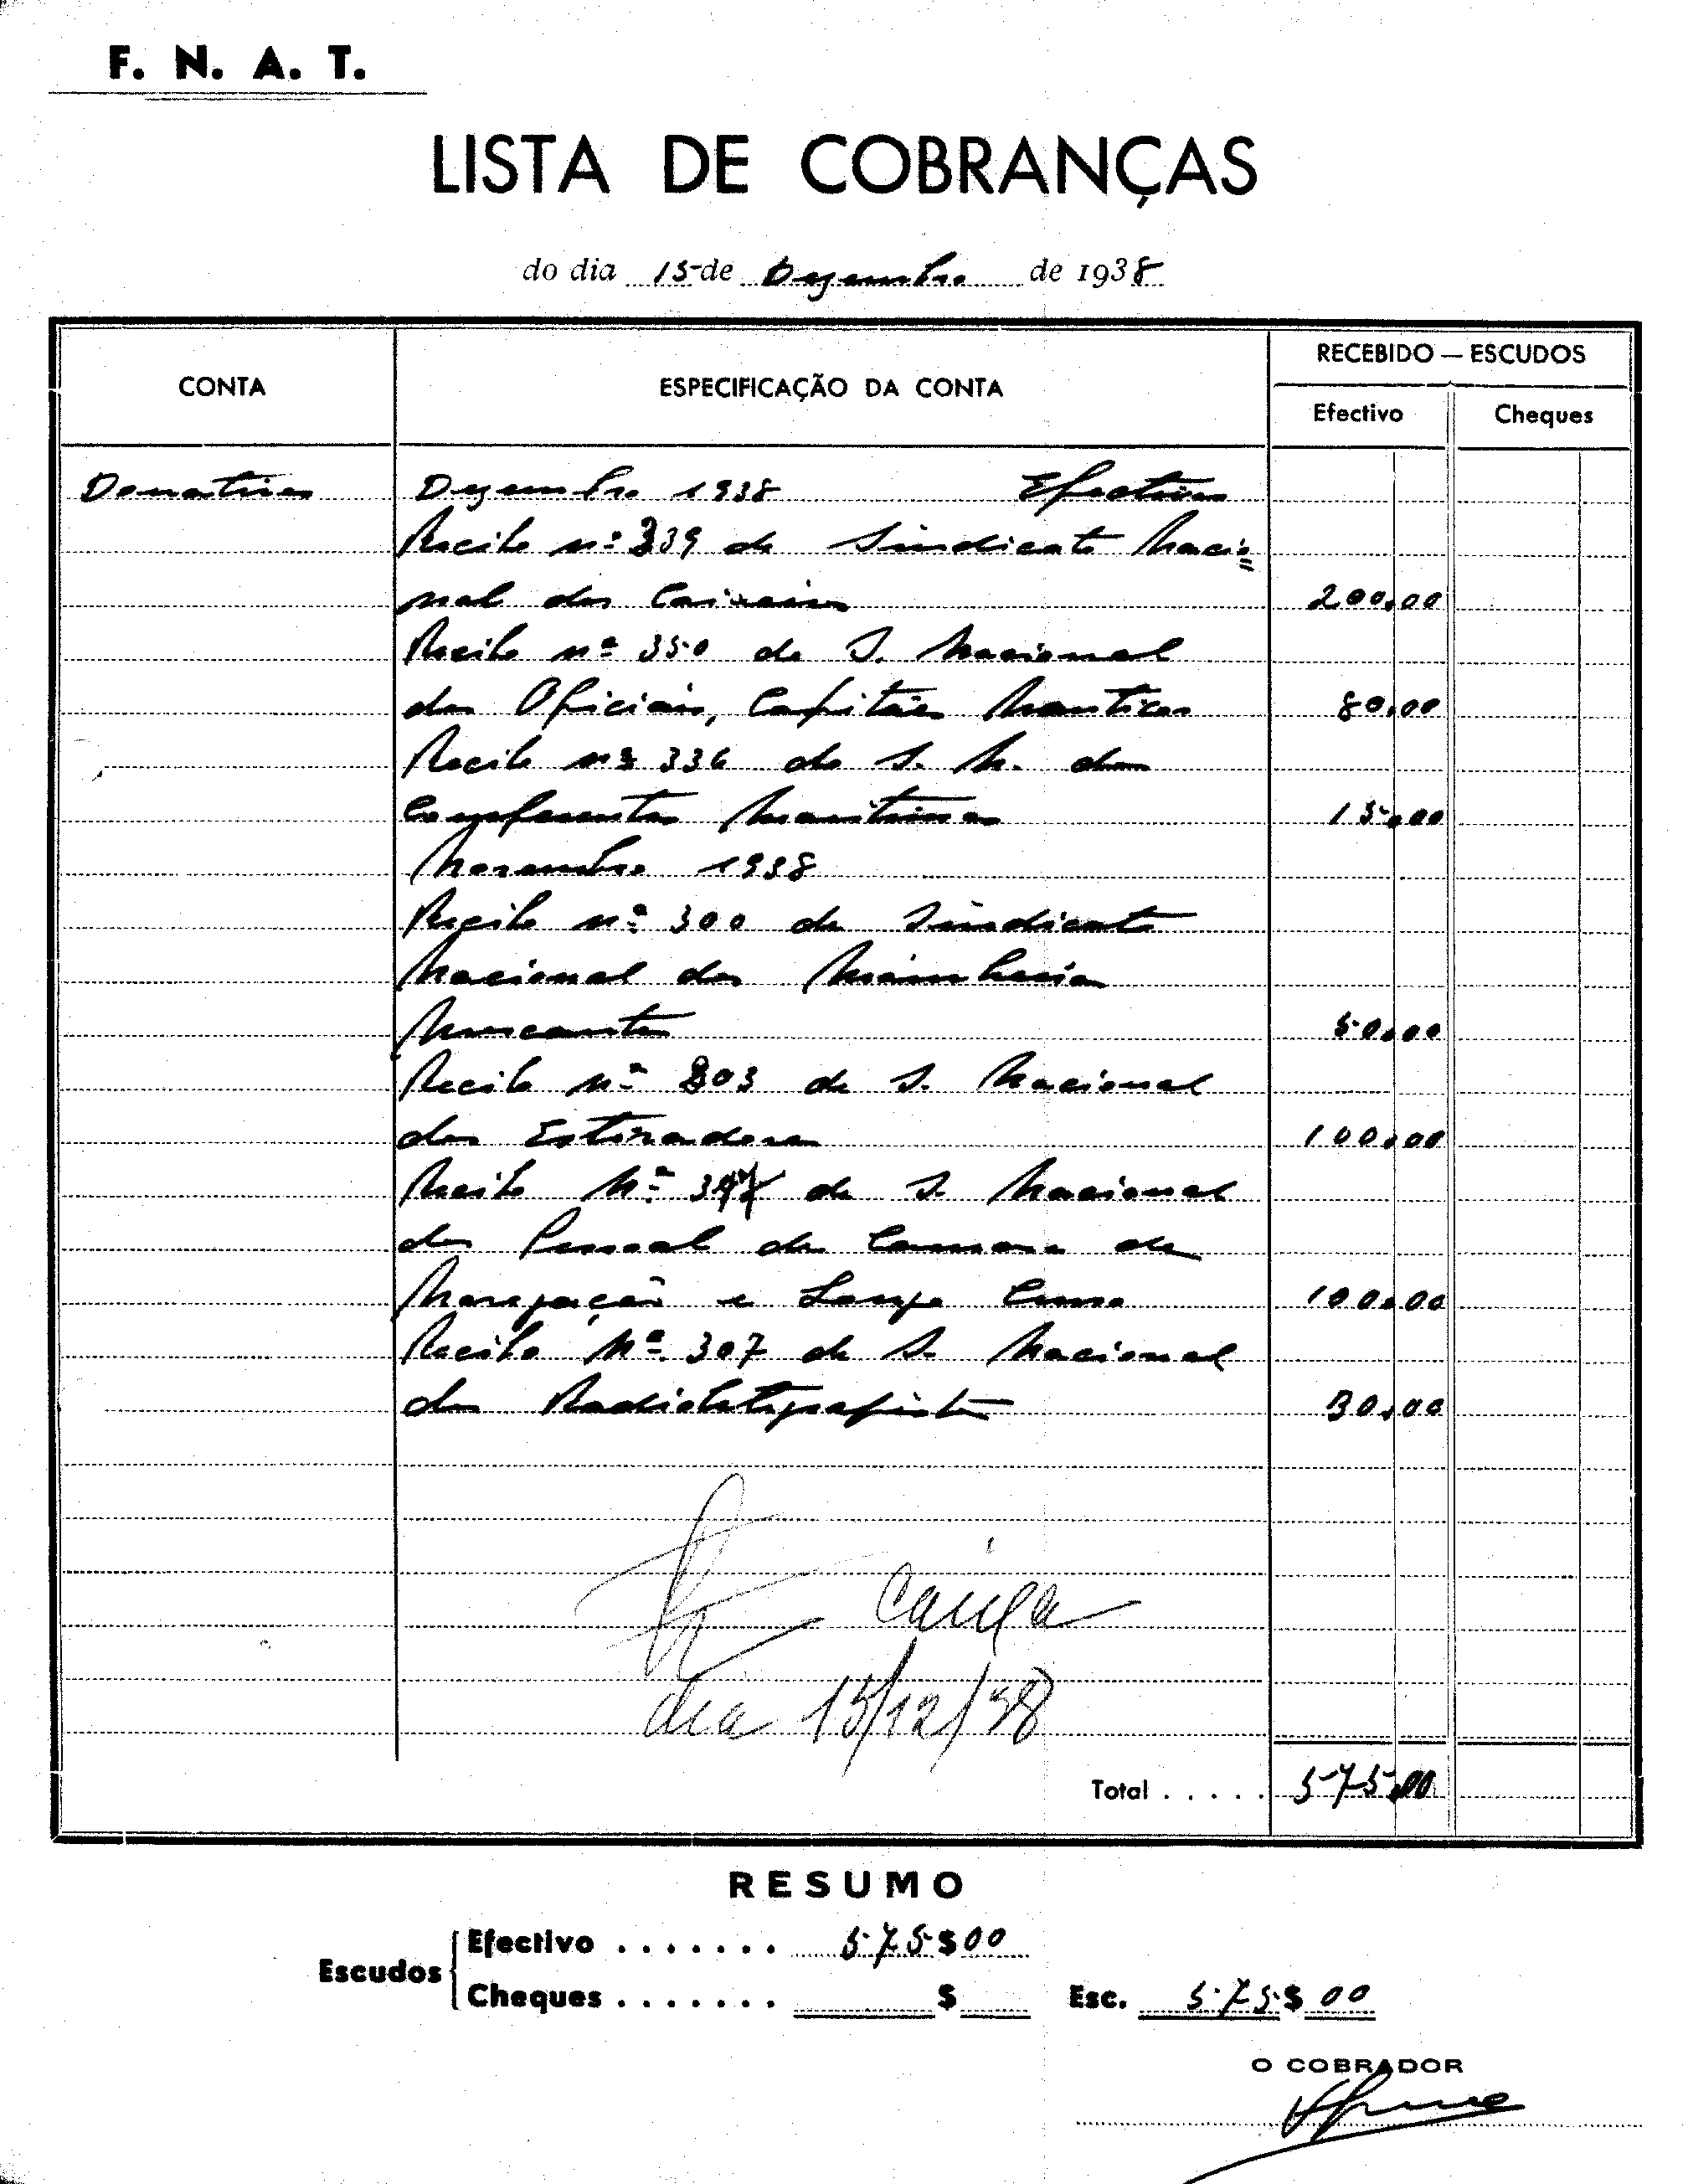 F. N. A. T.
LISTA DE COBRANÇAS
do dia 15 de Dezembro de 1938
CONTA
ESPECIFICAÇÃO DA CONTA
RECEBIDO — ESCUDOS
Efectivo
Cheques
Donativos Dezembro 1938 Efectivos
Recibo nº 339 do Sindicato Nacio=
nal dos Caixeiros 200,00
Recibo nº 350 do S. Nacional
dos Oficiais, Capitães Nauticos 80,00
Recibo nº 336 do S. N. dos
Maritimos 15,00
Novembro 1938
Recibo nº 300 do Sindicato
Nacional dos
Mercante 50,00
Recibo nº 303 do S. Nacional
dos Estivadores 100,00
Recibo Nº do S. Nacional
do Pessoal da Camara da
Navegação e Longo Curso 100,00
Recibo Nº 307 do S. Nacional
dos Radiotelegrafistas 30,00
caixa
dia 15/12/38
Total . . . . . 575,00
RESUMO
Escudos
Efectivo . . . . . . . 575$00
Cheques . . . . . . . $
Esc. 575$00
O COBRADOR